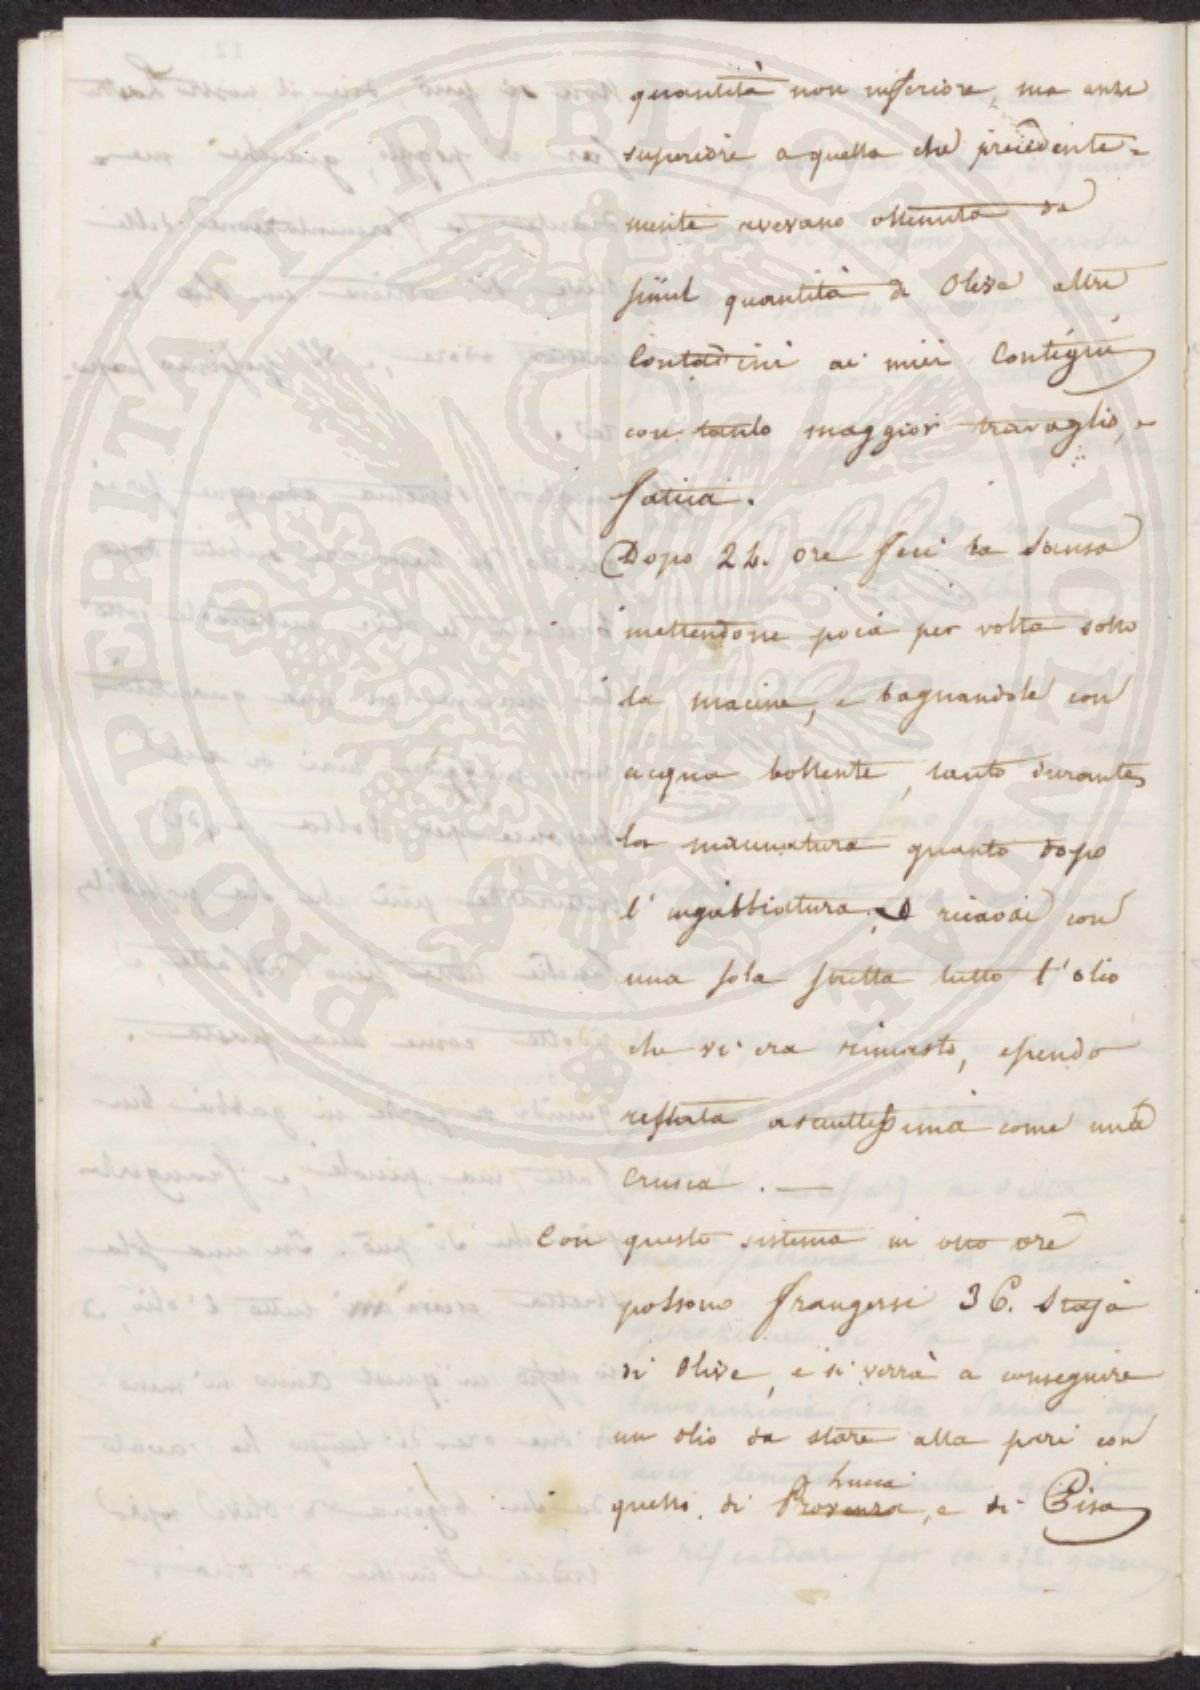 quantità non inferiore, ma anzi
superiore a quella che precedente=
mente avevano ottenuta da
simil quantità di Olive altri
Contadini ai miei Contigui
con tanto maggior travaglio, e
fatica.
Dopo 24. ore feci la Sansa
mettendone poca per volta sotto
la macine, e bagnandole con
acqua bollente, tanto durante
la macinatura quanto dopo
l' ingabbiatura, e ricavai con
una sola stretta tutto l' olio
che vi era rimasto, essendo
restata asciuttissima come una
Crusca. —
Con questo sistema in otto ore
possono frangersi 36. Staja
di Olive, e si verrà a conseguire
un olio da stare alla pari con
Lucca
quelli di Provenza, e di Pisa
PROSPERITATI PUBLICAE AUGENDAE